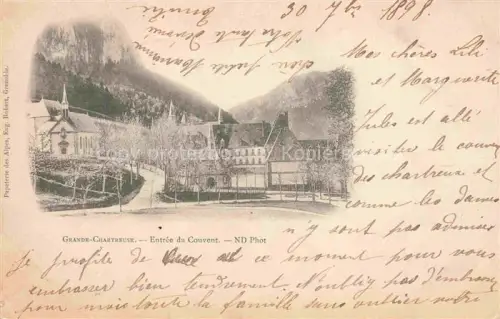 30 9bre 1898.
Mes chères Lili
et Marguerite
Jules est allé
visiter le couvent
des chartreux et
comme les dames
n'y sont pas admises
GRANDE-CHARTREUSE. — Entrée du Couvent. — ND Phot
je profite de ce moment pour vous
embrasser bien tendrement. N'oubliez pas d'embrasser
pour moi toute la famille sans oublier votre
chou petite Marraine
Votre tante Jérémie
Papeterie des Alpes, Eug. Robert, Grenoble.